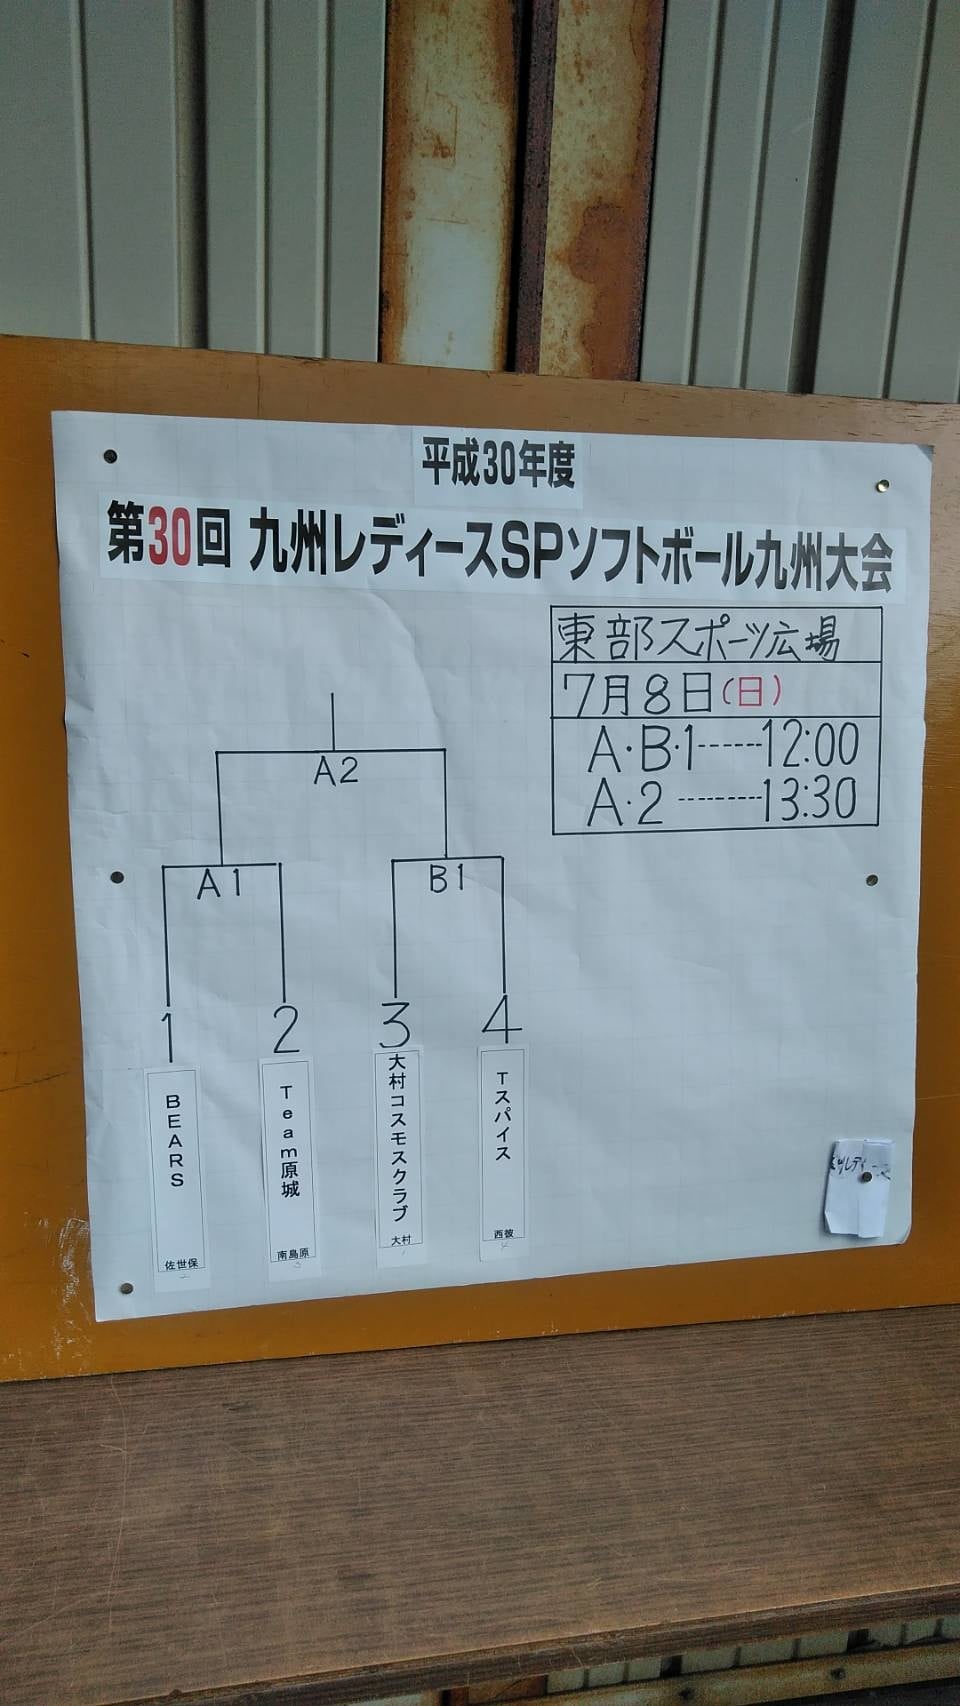 平成30年度
第30回 九州レディースSPソフトボール九州大会
東部スポーツ広場
7月8日(日)
A・B・1------12:00
A・2---------13:30
A2
A1
B1
1
2
3
4
BEARS
佐世保
2
Team原城
南島原
3
大村コスモスクラブ
大村
1
Tスパイス
西彼
4